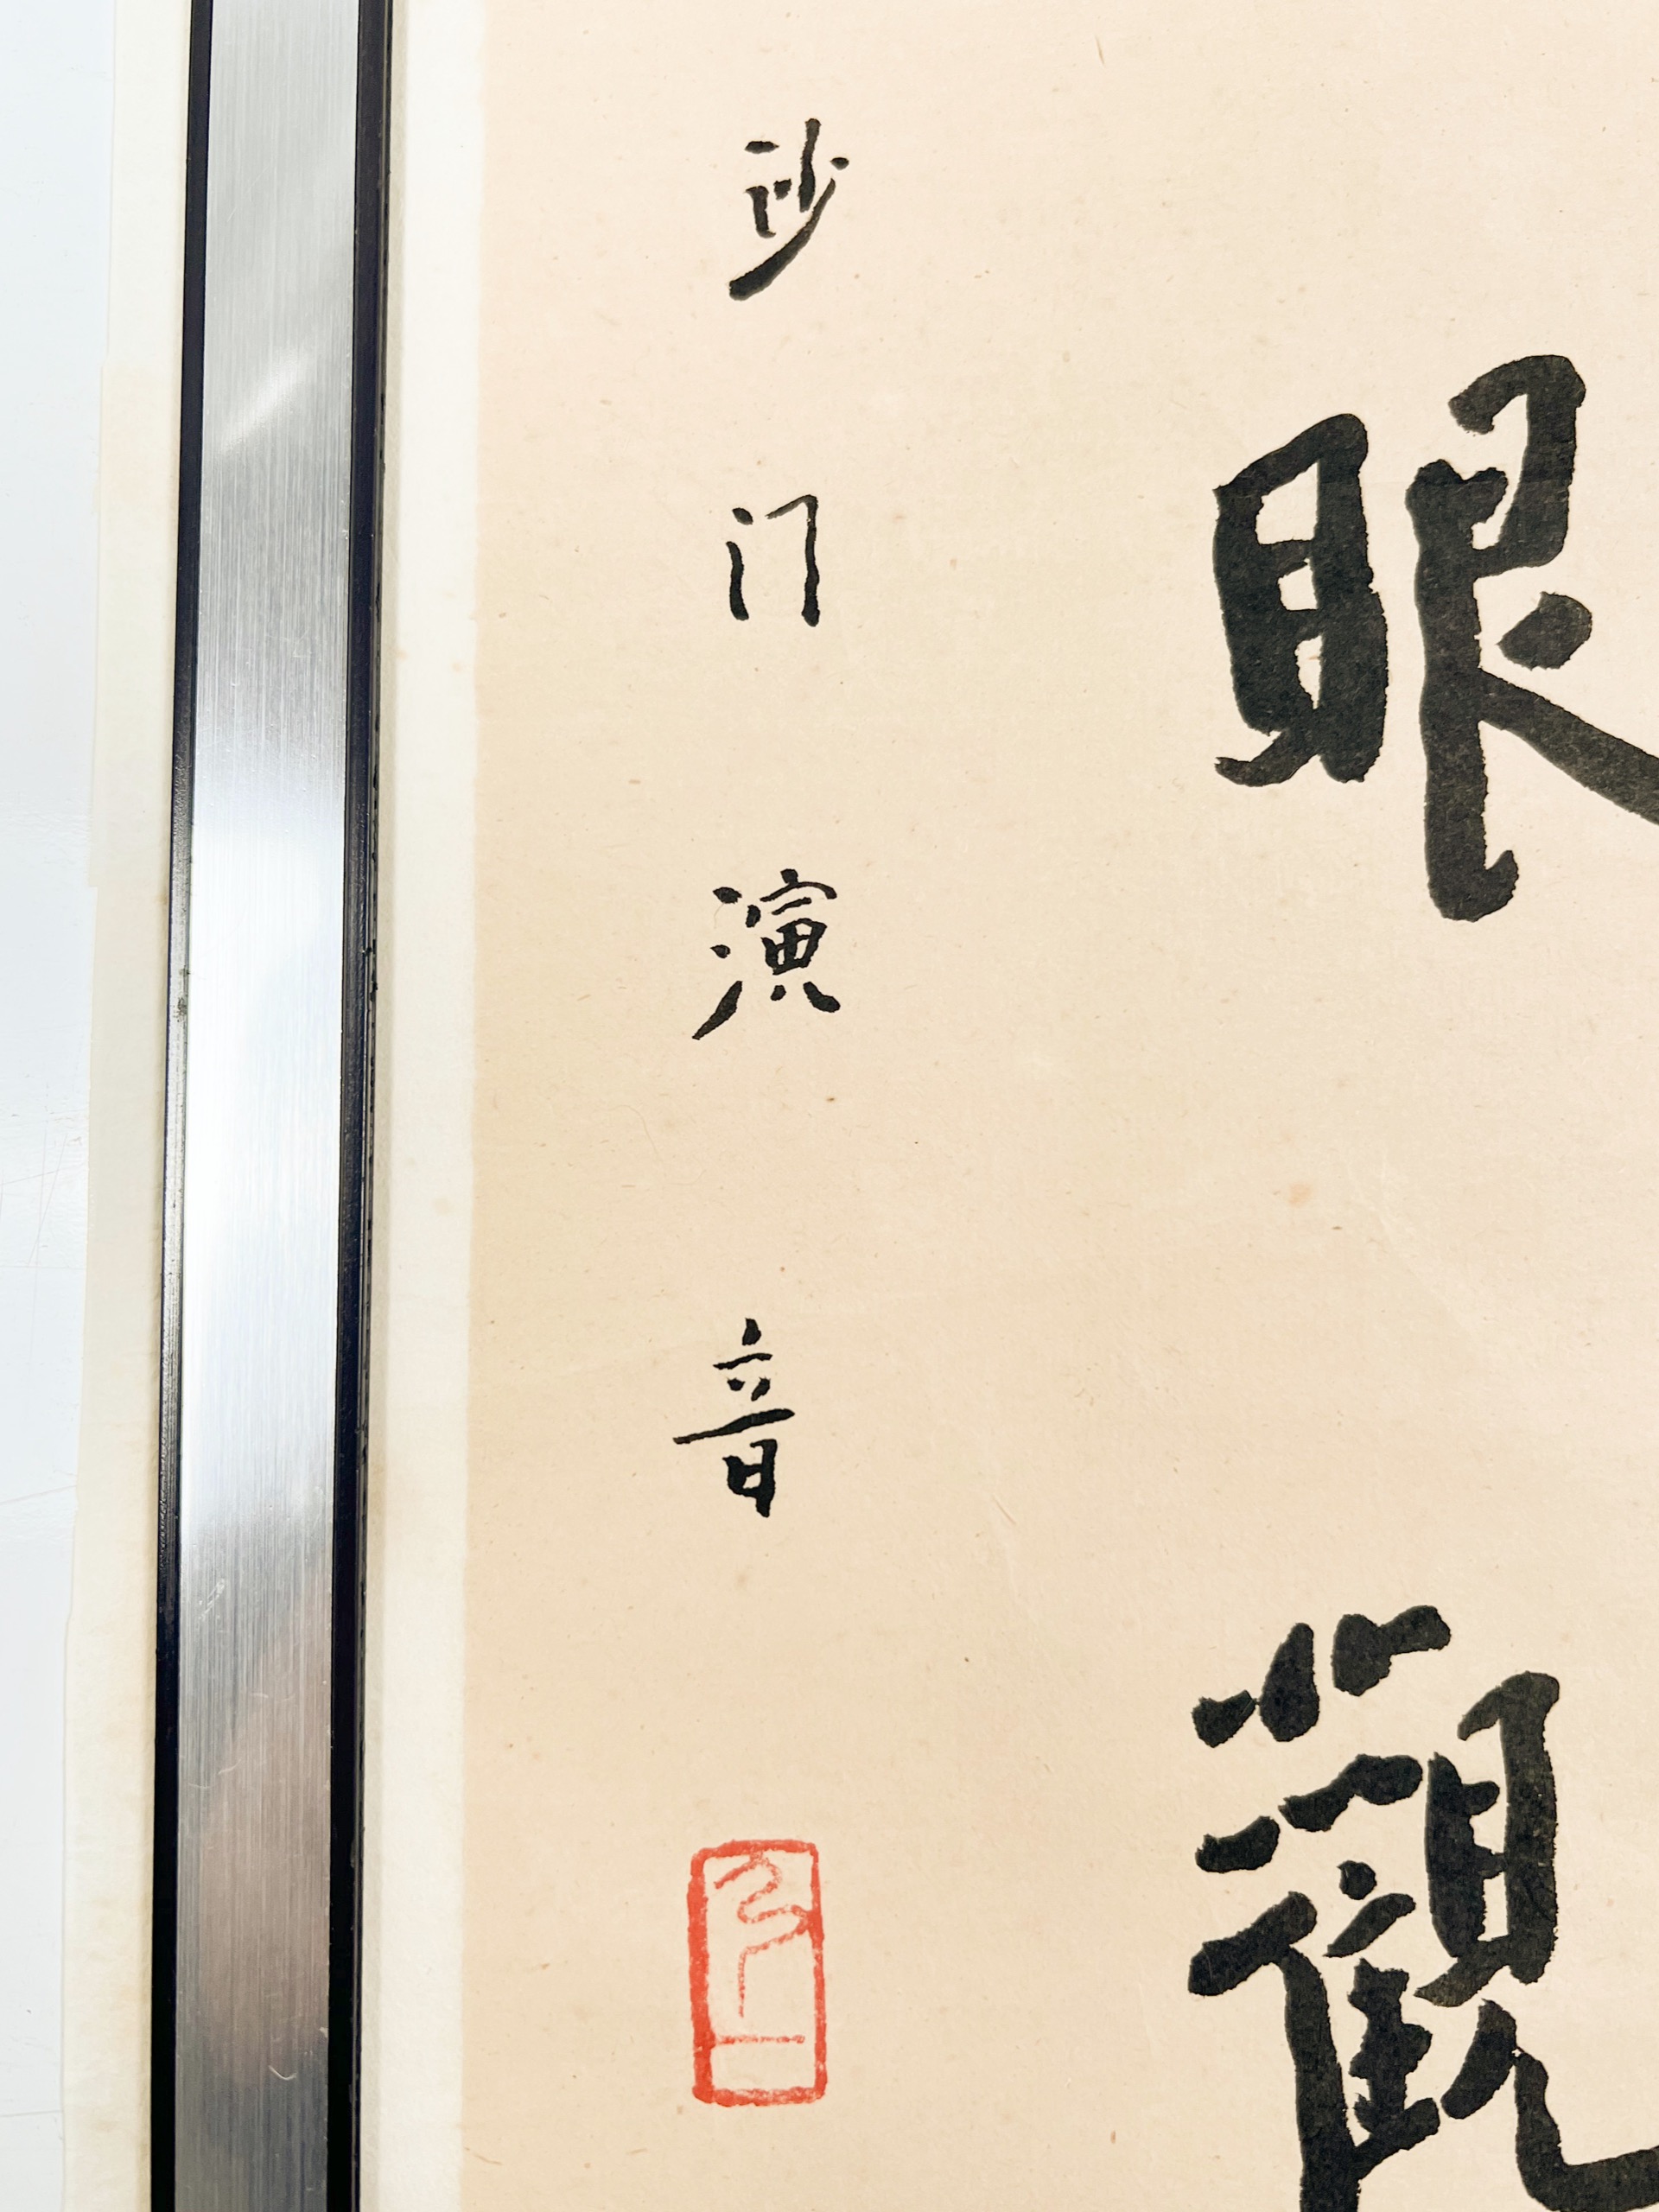 眼觀
沙门演音
弘一